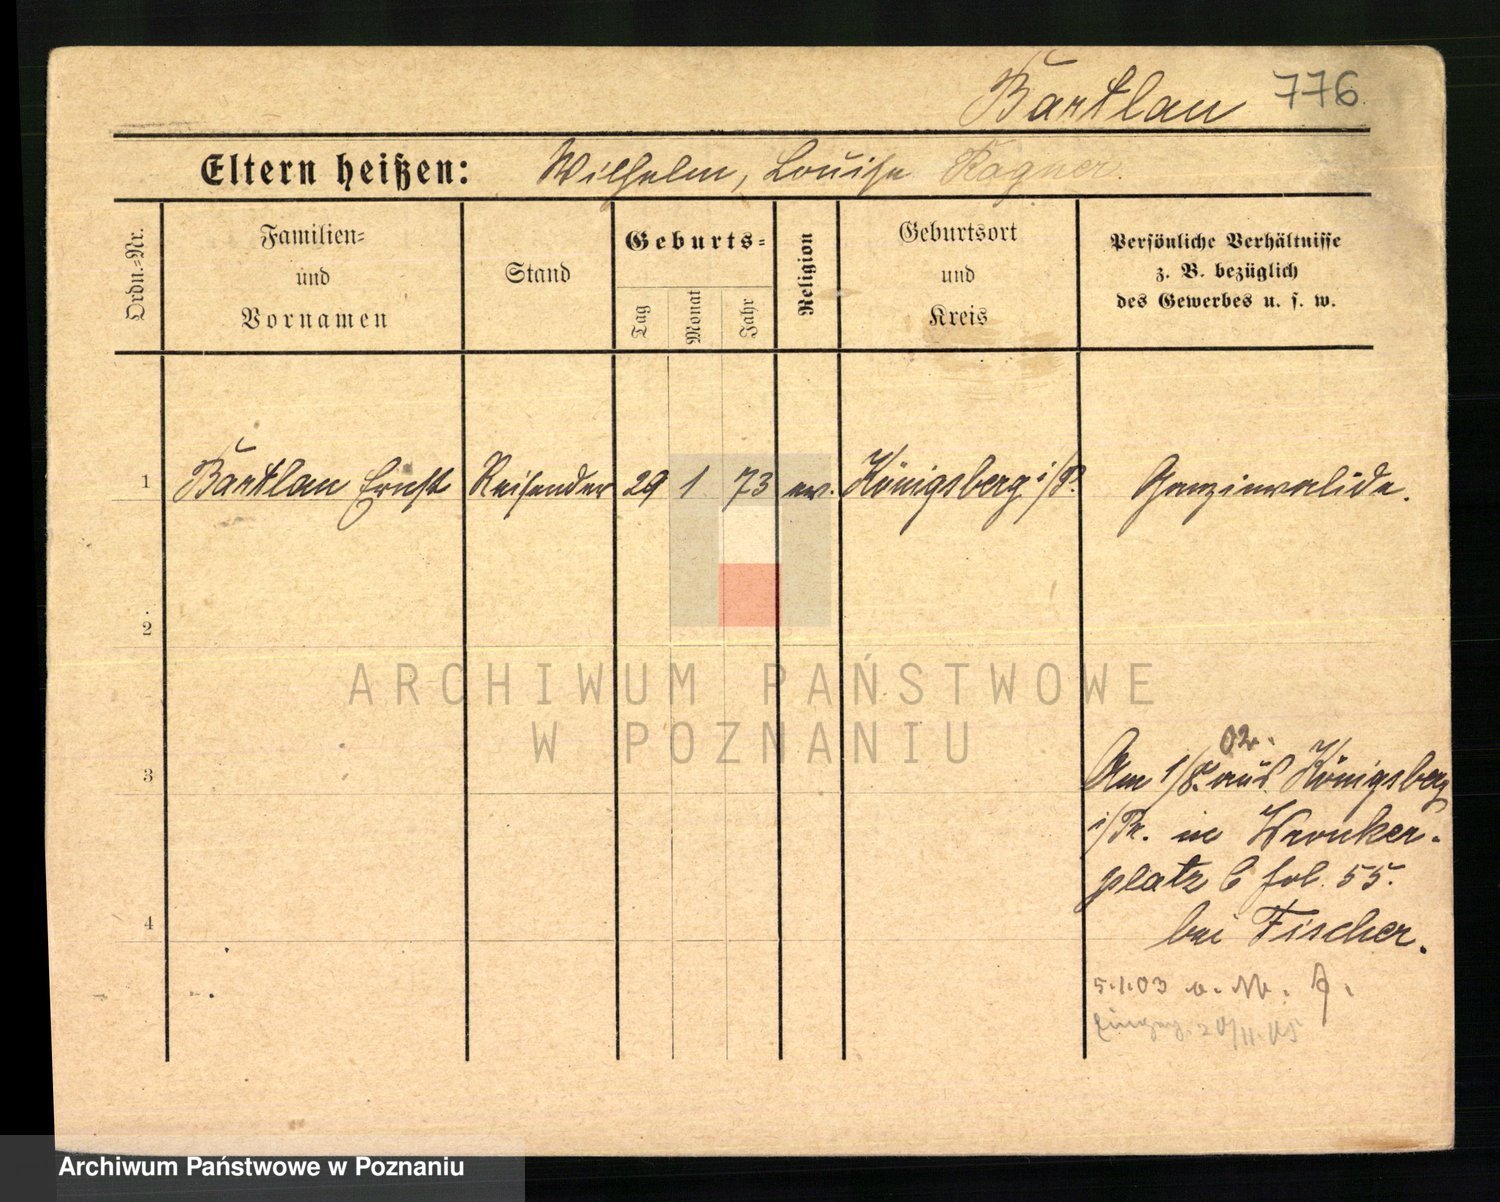 Bartlau 776
Eltern heißen: Wilhelm, Louise Wagner.
Ordn.-Nr.
Familien-
und
Vornamen
Stand
Geburts-
Tag
Monat
Jahr
Religion
Geburtsort
und
Kreis
Persönliche Verhältnisse
z. B. bezüglich
des Gewerbes u. s. w.
1 Bartlau Ernst Reisender 29 1 73 ev. Königsberg i/P. Ganzinvalide.
2
3
4
02.
Am 1/8. aus Königsberg
i/Pr. in Wronker-
platz 6 fol. 55.
bei Fischer.
5.1.03
ARCHIWUM PAŃSTWOWE
W POZNANIU
Archiwum Państwowe w Poznaniu